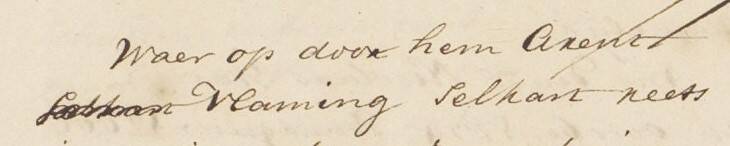 Waer op door hem Arent
Vlaming Selhart reets